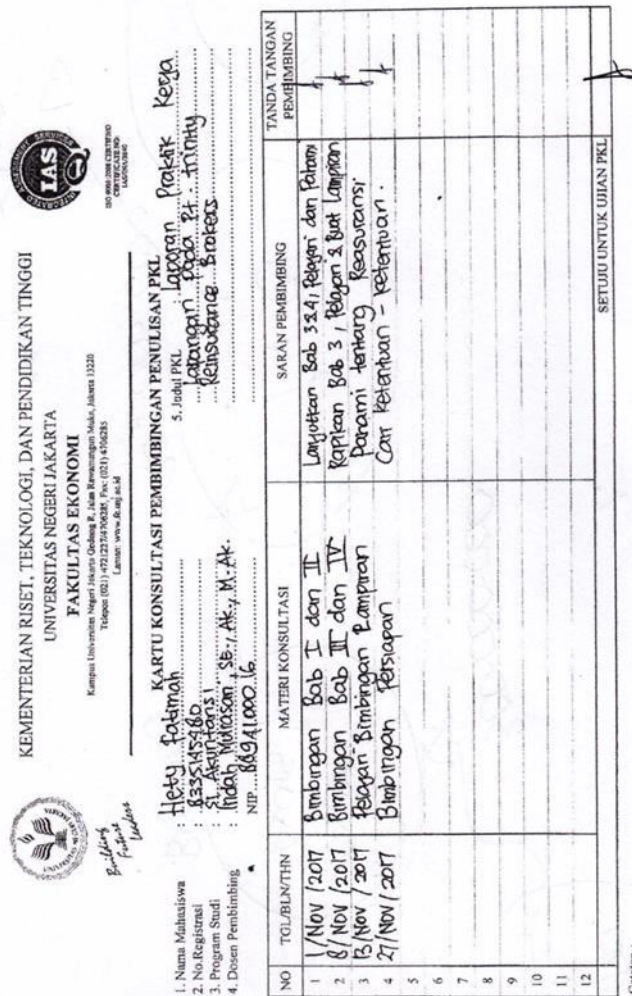 KEMENTERIAN RISET, TEKNOLOGI, DAN PENDIDIKAN TINGGI
UNIVERSITAS NEGERI JAKARTA
FAKULTAS EKONOMI
Kampus Universitas Negeri Jakarta Gedung R, Jalan Rawamangun Muka, Jakarta 13220
Telepon (021) 4721227/4706285, Fax: (021) 4706285
Laman: www.fe.unj.ac.id
Building
Future
Leaders
INTEGRATED ASSESSMENT SERVICES
IAS
ISO 9001:2008 CERTIFIED
CERTIFICATE NO:
KARTU KONSULTASI PEMBIMBINGAN PENULISAN PKL
1. Nama Mahasiswa : Hety Fatimah
2. No.Registrasi : 8335145480
3. Program Studi : S1 Akuntansi
4. Dosen Pembimbing : Indah Muliasari, SE., Ak., M.Ak.
NIP
5. Judul PKL : Laporan Praktik Kerja
Lapangan Pada Pt. Trinity
Reinsurance Brokers
NO TGL/BLN/THN MATERI KONSULTASI SARAN PEMBIMBING TANDA TANGAN PEMBIMBING
1 1/Nov/2017 Bimbingan Bab I dan II Lanjutkan Bab 3&4, Pelajari dan Pahami
2 8/Nov/2017 Bimbingan Bab III dan IV Rapikan Bab 3, Pelajari & Buat Lampiran
3 13/Nov/2017 Pelajari Bimbingan Lampiran Pahami tentang Reasuransi
4 27/Nov/2017 Bimbingan Persiapan Cari Ketentuan - ketentuan.
5
6
7
8
9
10
11
12
SETUJU UNTUK UJIAN PKL